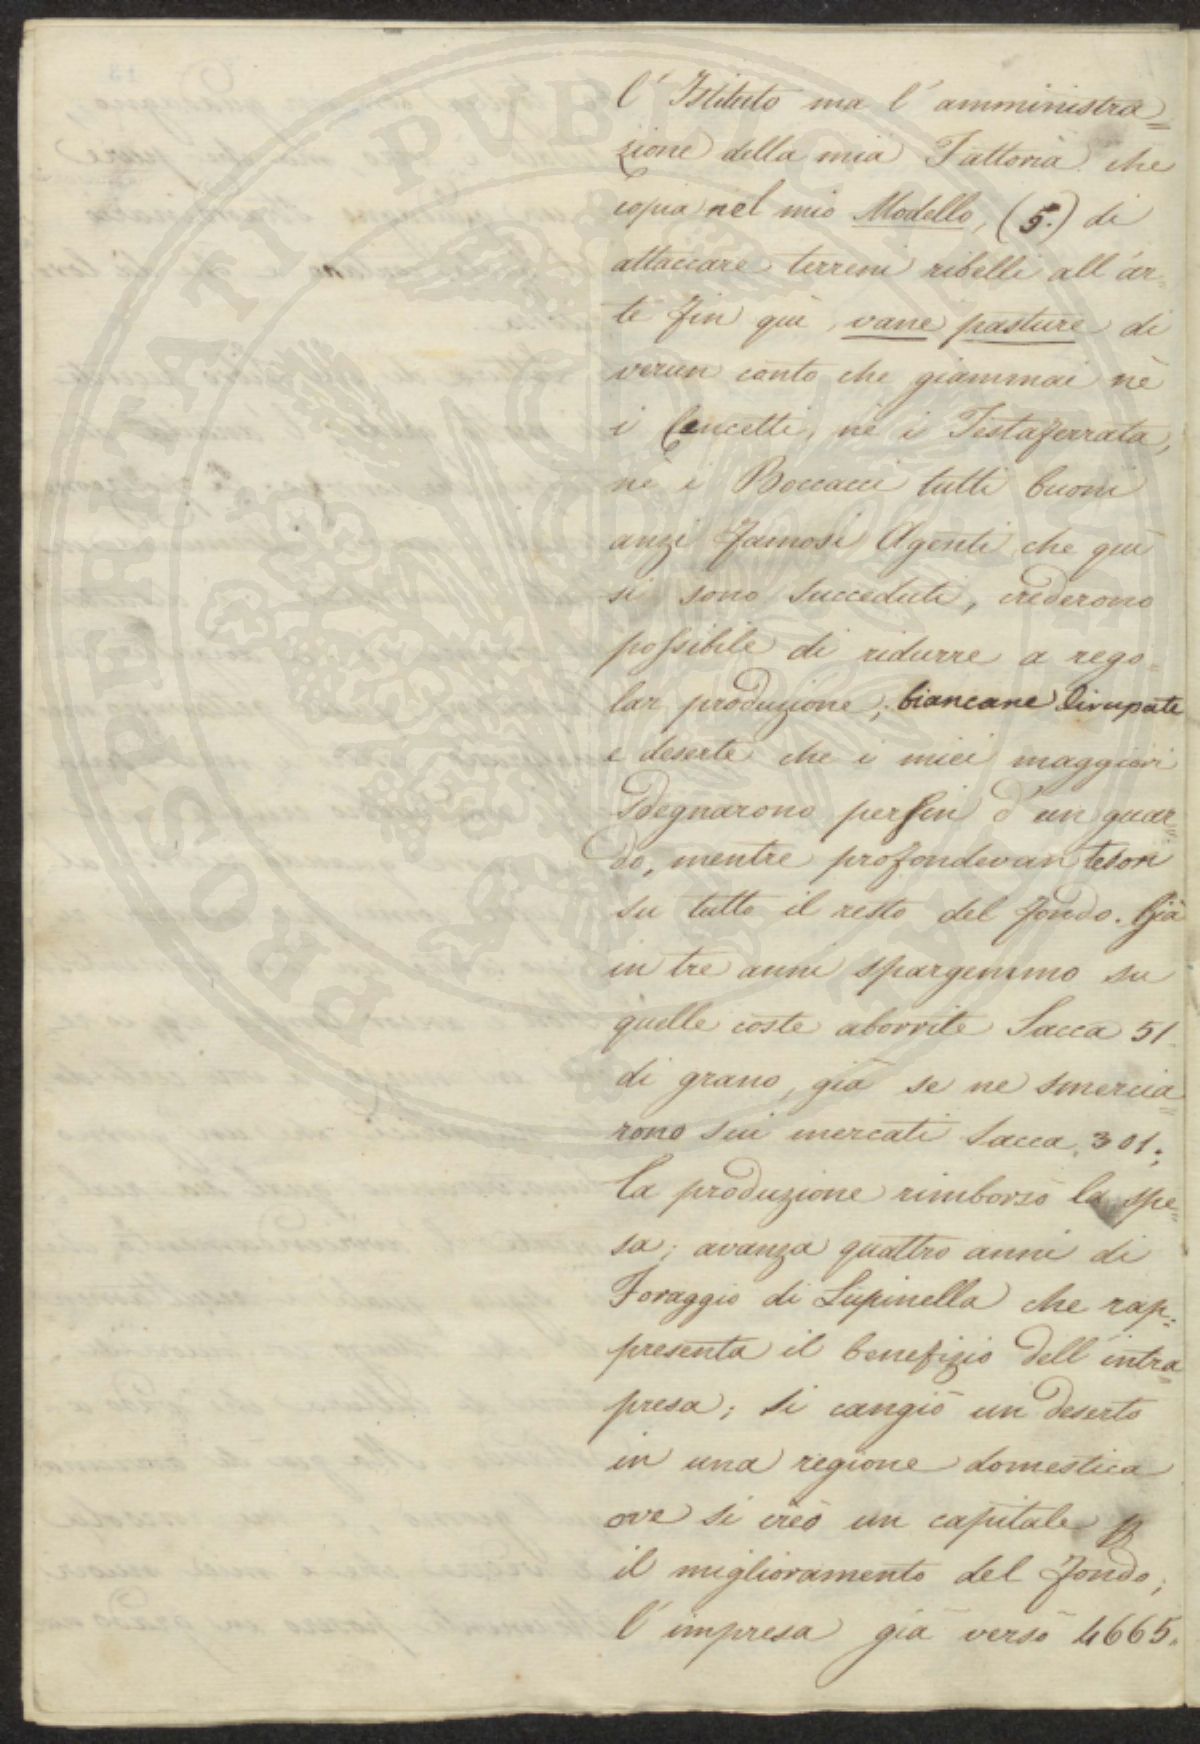 l' Istituto ma l' amministra=
zione della mia Fattoria che
copia nel mio Modello, (5.) di
attaccare terreni ribelli all' ar=
te fin quì, vane pasture di
verun conto che giammai nè
i Cencetti, nè i Testaferrata,
nè i Boccacci tutti buoni
anzi famosi Agenti che quì
si sono succeduti, crederono
possibile di ridurre a rego=
lar produzione; biancane dirupate
e deserte che i miei maggiori
sdegnarono perfin d' un guar=
do, mentre profondevan tesori
su tutto il resto del fondo. Già
in tre anni spargemmo su
quelle coste aborrite Sacca 51
di grano, già se ne smercia=
rono sui mercati Sacca 301;
la produzione rimborsò la spe=
sa; avanza quattro anni di
Foraggio di Lupinella che rap=
presenta il benefizio dell' intra=
presa; si cangiò un deserto
in una regione domestica
ove si creò un capitale
il miglioramento del fondo;
l' impresa già versò 4665.
PROSPERITATI PUBLICAE